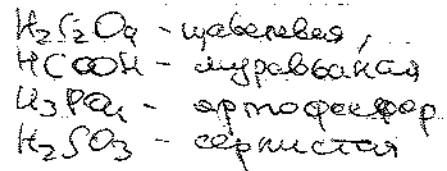 H₂C₂O₄ - щавелевая,
HCOOH - муравьиная
H₃PO₄ - ортофосфор
H₂SO₃ - сернистая